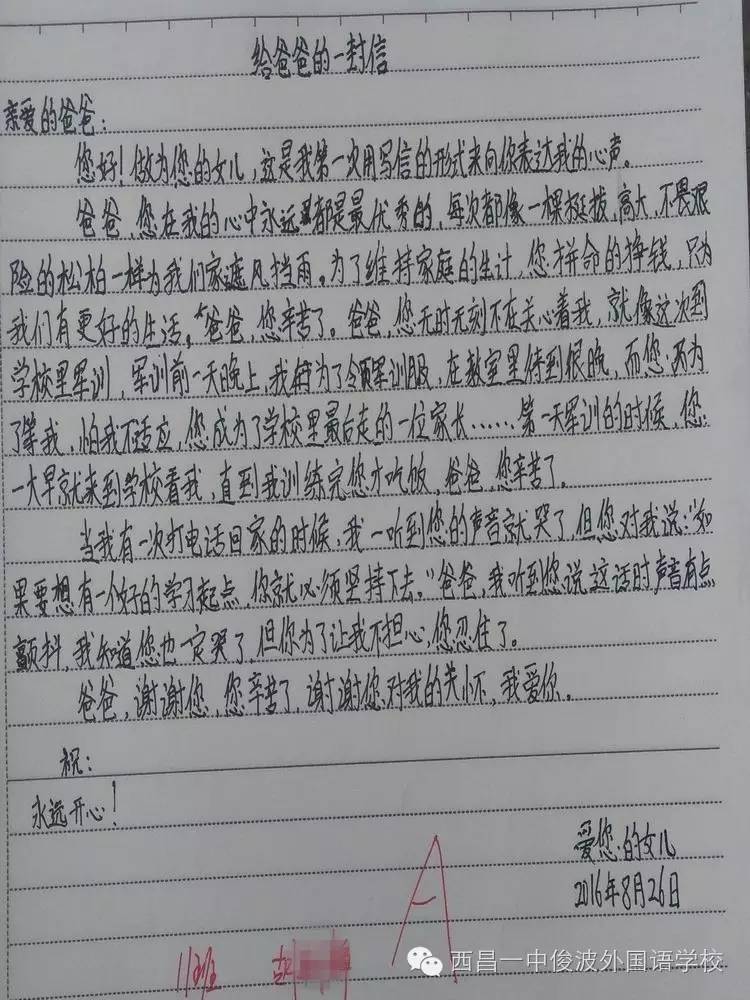 给爸爸的一封信
亲爱的爸爸：
您好！做为您的女儿，这是我第一次用写信的形式来向你表达我的心声。
爸爸，您在我的心中永远都是最优秀的，每次都像一棵挺拔，高大，不畏艰
险的松柏一样为我们家遮风挡雨。为了维持家庭的生计，您拼命的挣钱，只为
我们有更好的生活。爸爸，您辛苦了。爸爸，您无时无刻不在关心着我，就像这次到
学校里军训，军训前一天晚上，我为了领军训服，在教室里待到很晚，而您为
了等我，怕我不适应，您成为了学校里最后走的一位家长……第一天军训的时候，您
一大早就来到学校看我，直到我训练完您才吃饭，爸爸，您辛苦了。
当我有一次打电话回家的时候，我一听到您的声音就哭了，但您对我说：“如
果要想有一个好的学习起点，你就必须坚持下去。”爸爸，我听到您说这话时声音有点
颤抖，我知道您也一定哭了，但你为了让我不担心，您忍住了。
爸爸，谢谢您，您辛苦了，谢谢您对我的关怀，我爱你。
祝：
永远开心！
爱您的女儿
2016年8月26日
A
11班 胡
西昌一中俊波外国语学校